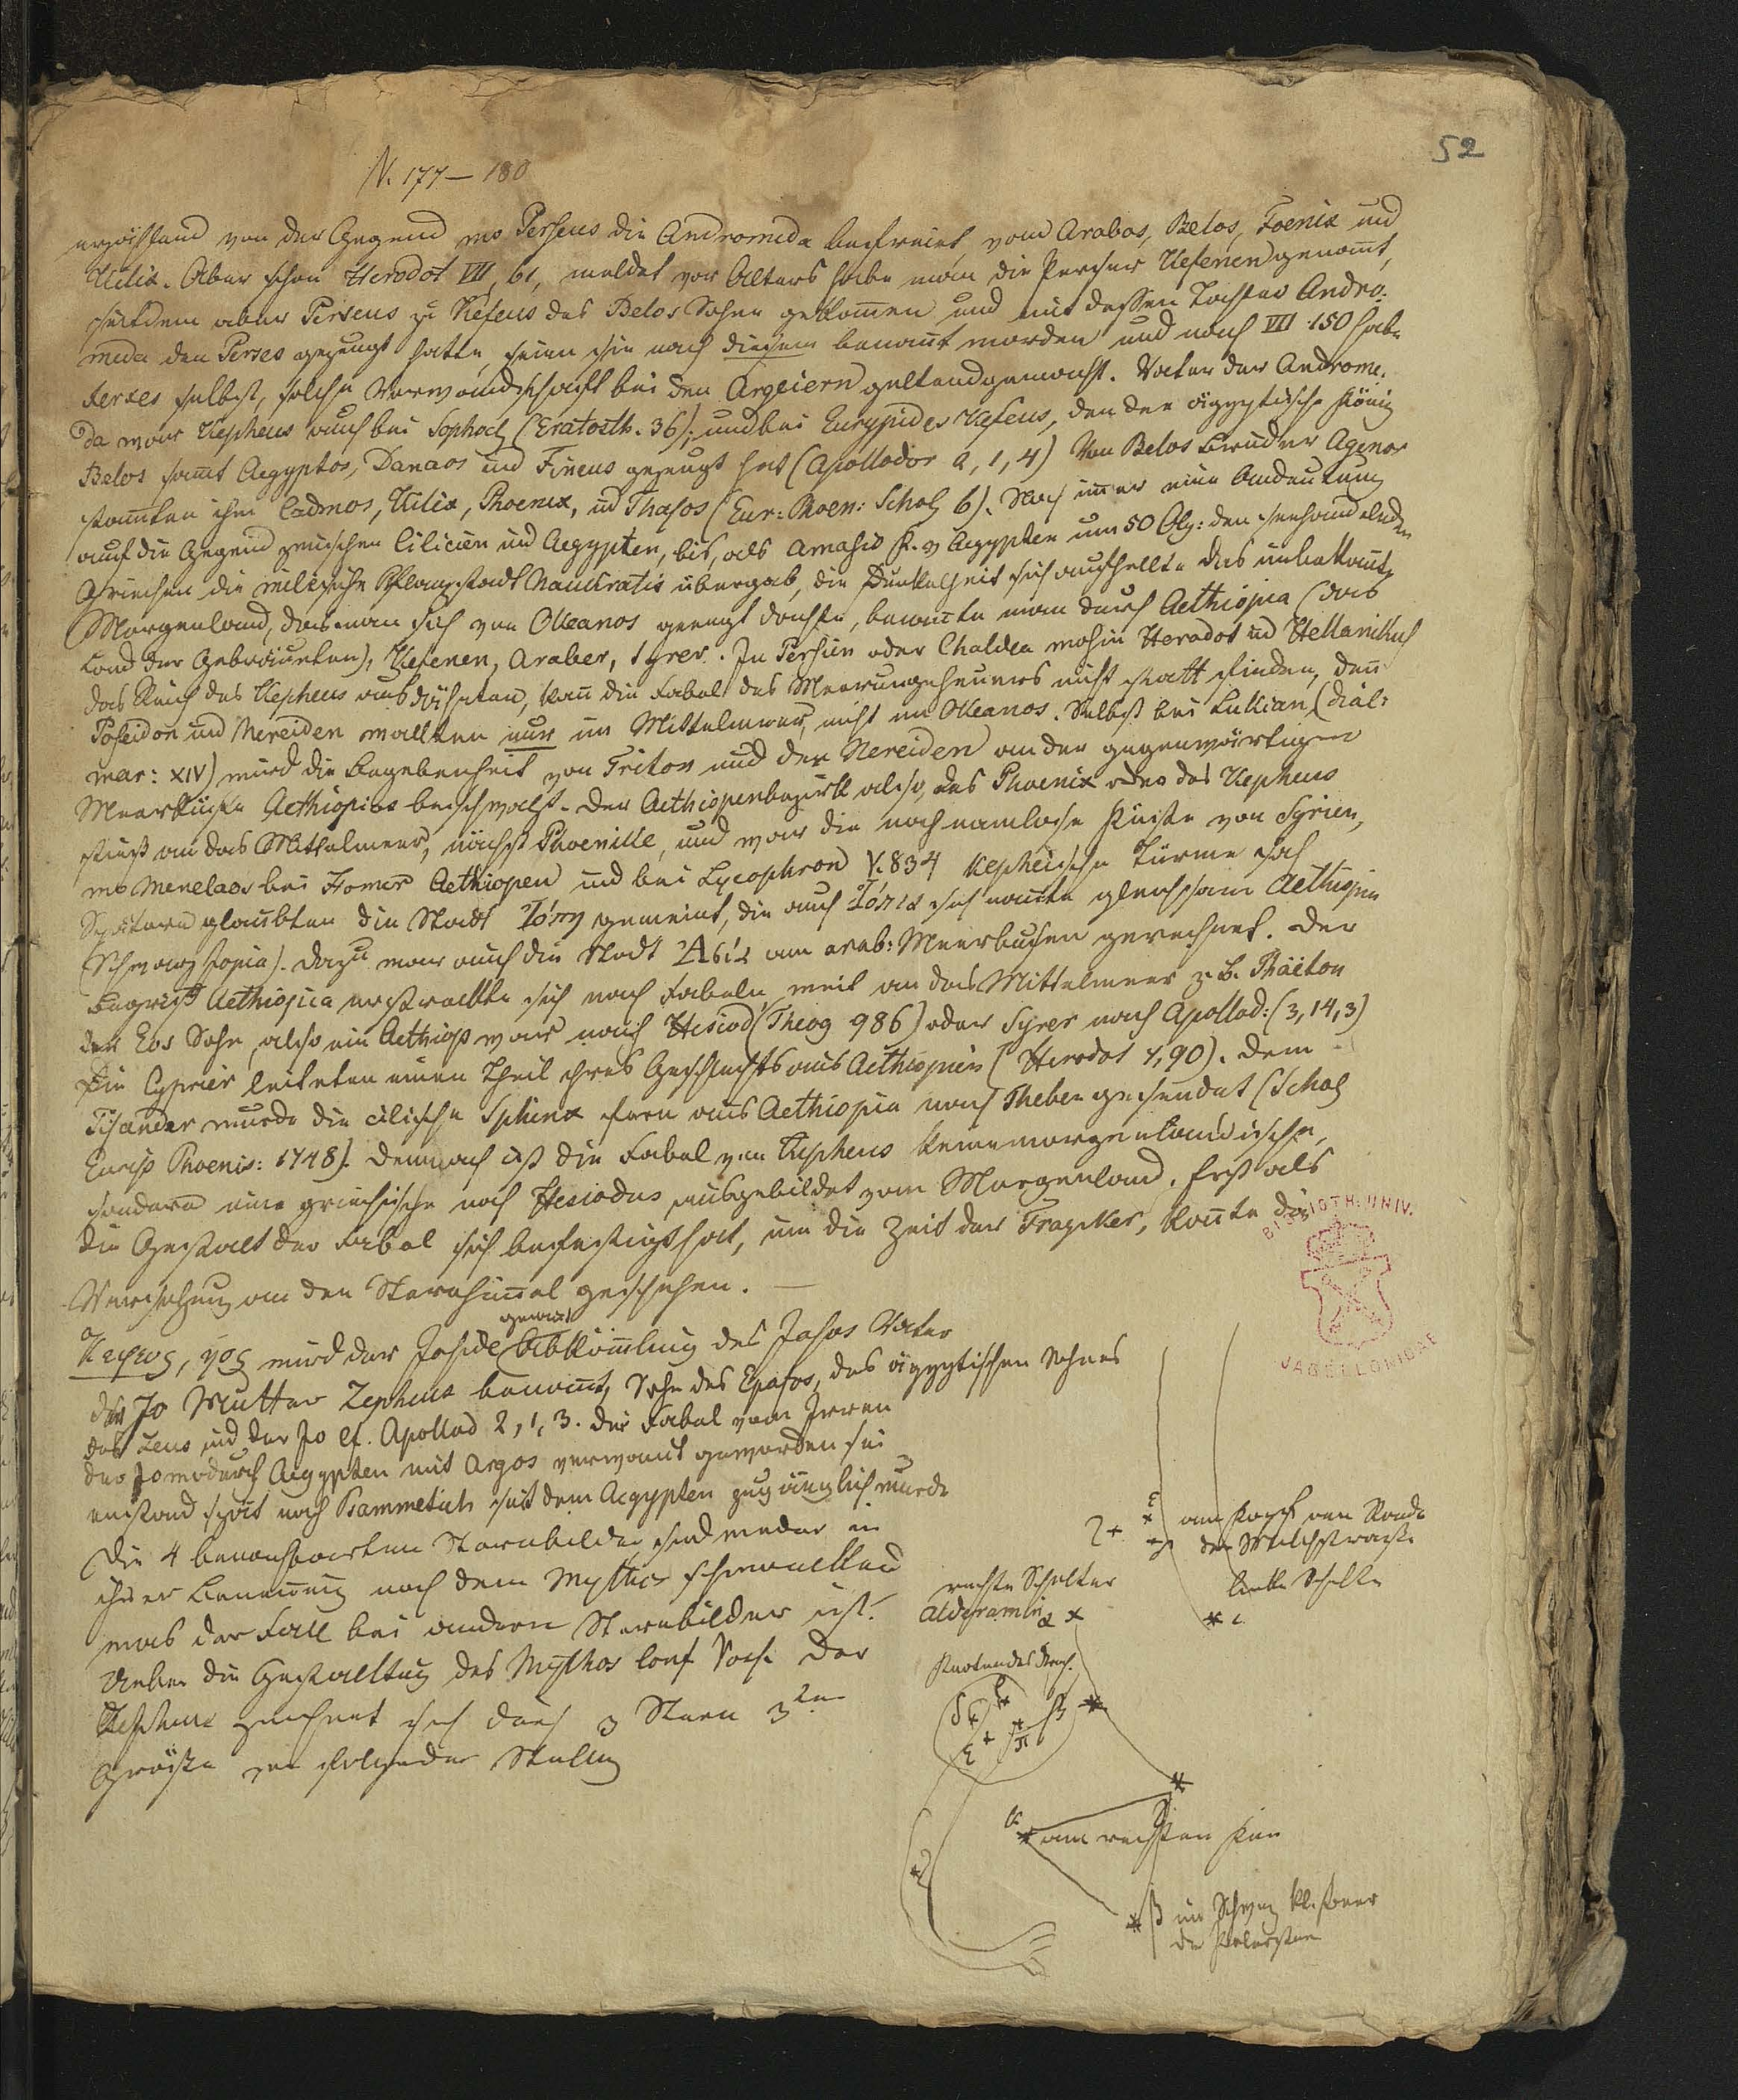 52
V. 177–180
erzählend von der Gegend wo Perseus die Andromeda befreiet, vom Arabos, Belos, Foenix und
Kilix. Aber schon Herodot VII, 61, meldet vor Alters habe man die Perser Kefenen genant,
seitdem aber Perseus zu Kefeus des Belos Sohne gekommen und mit dessen Tochter Andro-
meda den Perses gezeugt hatte, seien sie nach diesem benant worden und nach VII 150 habe
Xerxes selbst, solche Verwandschaft bei den Argeiern geltendgemacht. Vater der Androme-
da war Kepheus auch bei Sophocl (Eratosth. 36); und bei Eurypides Kefeus, den der ägyptische König
Belos samt Aegyptos, Danaos und Fineus gezeugt hat (Apollodor 2, 1, 4) Von Belos Bruder Agenor
stamten ihm Cadmos, Kilix, Phoenix, und Thasos (Eur: Phoen: Schol 6). Noch immer eine Andeutung
auf die Gegend zwischen Cilicien und Aegypten, bis, als Amasis K. v Aegypten um 50 Oly: den seehandelnden
Griechen die milesische Pflanzstadt Naukratis übergab, die Dunkelheit sich aufhellte das unbekante
Morgenland, das man sich vom Okeanos geengt dachte, benante man durch Aethiopia (das
Land der Gebräunten), Kefenen, Araber, Syrer. In Persien oder Chaldea wohin Herodot und Hellanikus
das Reich des Kepheus ausdähnten, kan die Fabel des Meerungeheuers nicht statt finden, den
Poseidon und Nereiden walteten nur im Mittelmeer, nicht im Okeanos. Selbst bei Lukian (dial:
mar: XIV) wird die Begebenheit von Triton und den Nereiden an der gegenwärtigen
Meerküste Aethiopiens beschwatzt. Der Aethiopenbezirk also, des Phoenix oder des Kepheus
stieß an das Mittelmeer, nächst Phoenike, und war die noch namlose Küste von Syrien,
wo Menelaos bei Homer Aethiopen und bei Lycophron V. 834 Kepheische Türme sah
Spätere glaubten die Stadt Ἰόπη gemeint, die auch Ἰόπια sich nante gleichsam Aethiopia
(Schwarzjopia). Dazu war auch die Stadt am arab: Meerbusen gerechnet. Der
Begriff Aethiopia erstreckte sich nach Fabeln weit an das Mittelmeer z. B. Phaëton
der Eos Sohn, also ein Aethiop war nach Hesiod (Theog 986) oder Syrer nach Apollod: (3, 14, 3)
Die Cyprier leiteten einen Theil ihres Geschlechts aus Aethiopien (Herodot 7, 90). Dem
Pisander wurde die cilische Sphinx fern aus Aethiopia nach Theben gesendet (Schol
Eurip Phoenis: 1748). Demnach ist die Fabel vom Kepheus keine morgenländische,
sondern eine griechische nach Hesiodus ausgebildet vom Morgenland. Erst als
die Gestalt der Fabel sich befestigt hat, um die Zeit der Tragiker, konte die
Versetzung an den Sternhimel geschehen. —
Κηφευς, ηος wird der Jaside Abkömmling des Jasos Vater
der Jo Mutter Zepheus benant, Sohn des Epafos, des ägyptischen Sohnes
des Zeus und der Jo cf. Apollod 2, 1, 3. Die Fabel vom Irren
der Jo wodurch Aegypten mit Argos verwant geworden sei
enstand spät nach Psammetich seit dem Aegypten zugänglich wurde
Die 4 benachbarten Sternbilder sind weder in
ihrer Benennung noch dem Mythos schwankend
was der Fall bei andern Sternbilder ist.
Ueber die Gestaltung des Mythos
Kepheus zeichnet sich durch 3 Stern 3ter
Grösse von folgender Stellung
am Kopf am Rande
der Milchstrasse
linke Schulter
rechte Schulter
Alderamin α
am rechten Knie
β
BIBLIOTH. UNIV.
JAGELLONICAE